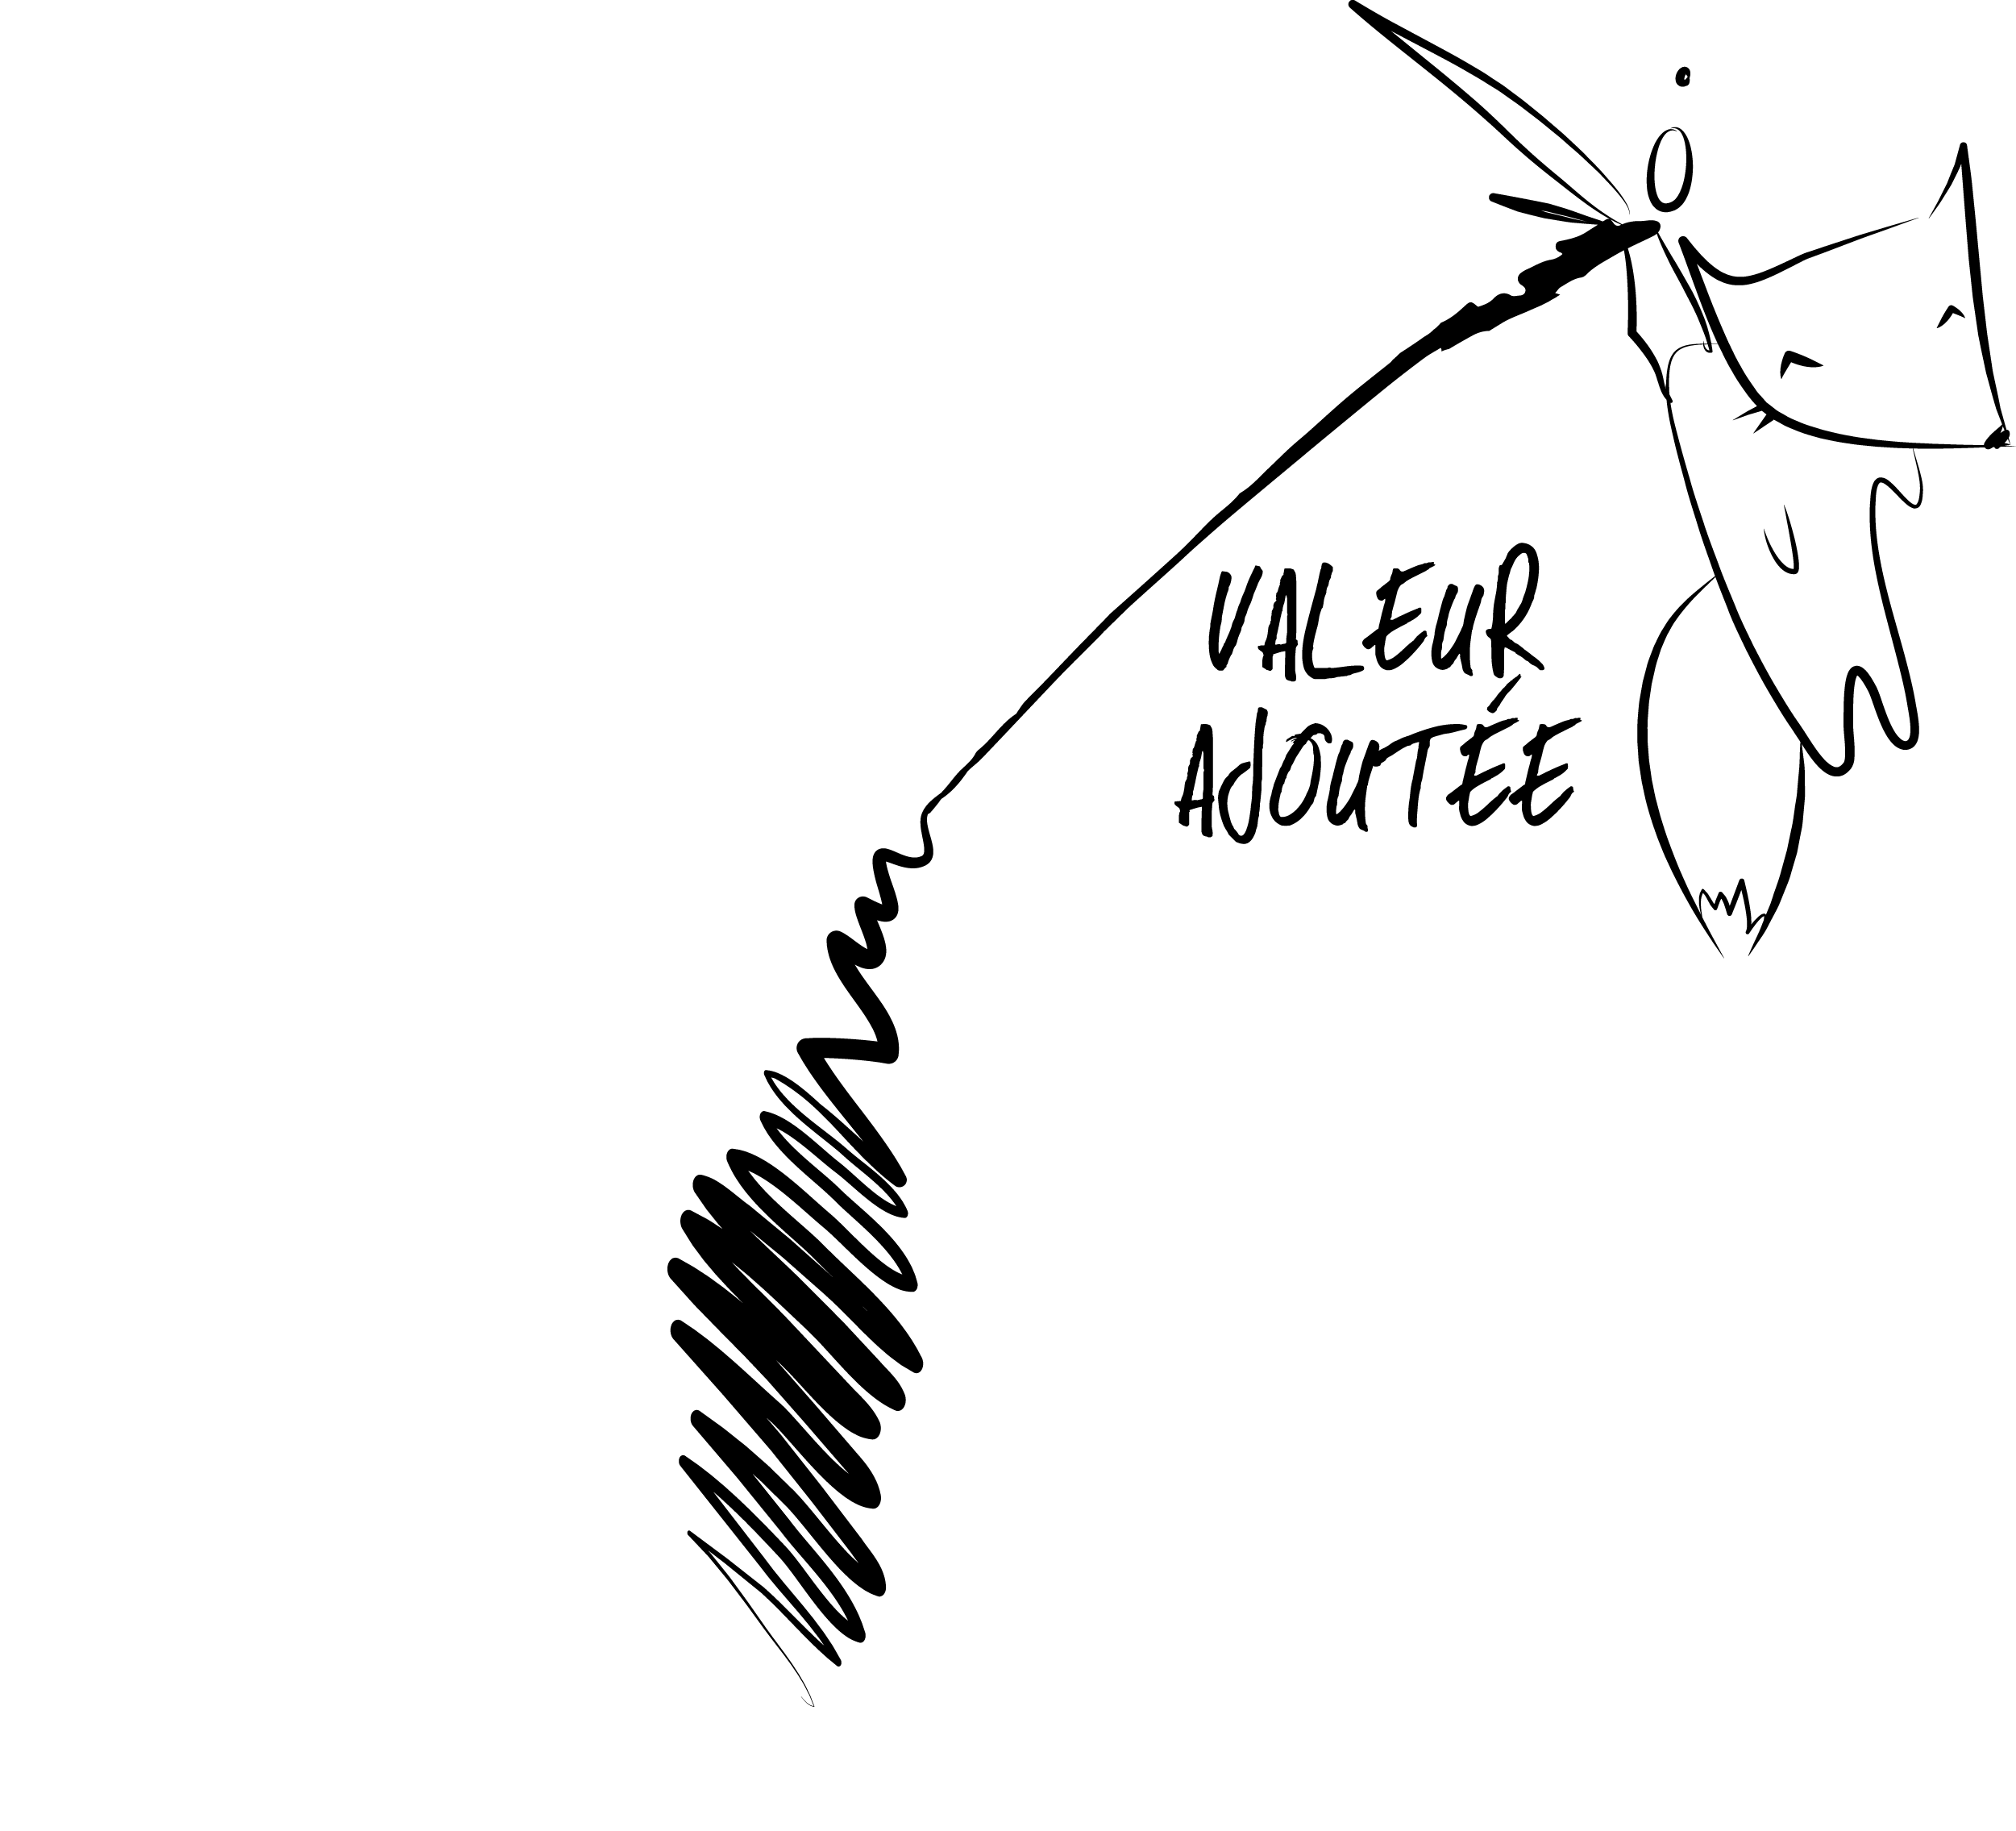 VALEUR
AJOUTÉE